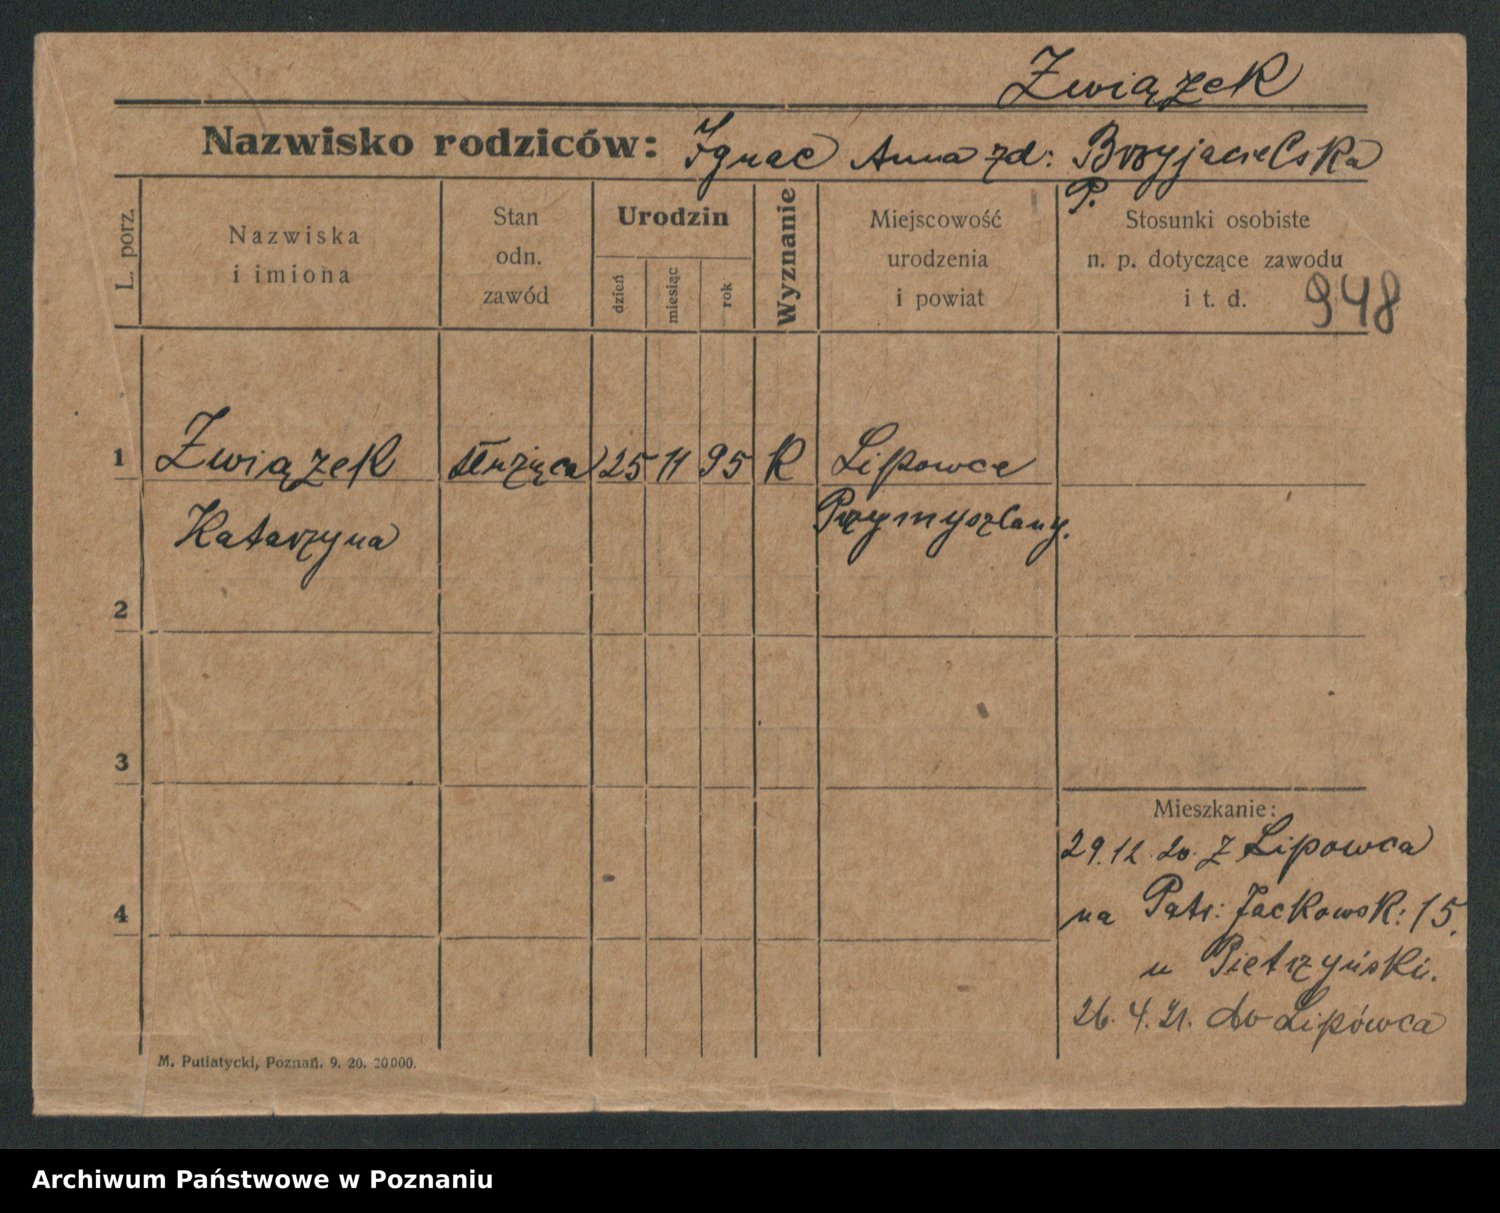 Związek
Nazwisko rodziców: Ignac Anna zd: Brzyjacielska
P.
L. porz.
Nazwiska
i imiona
Stan
odn.
zawód
Urodzin
dzień
miesiąc
rok
Wyznanie
Miejscowość
urodzenia
i powiat
Stosunki osobiste
n. p. dotyczące zawodu
i t. d.
948
1 Związek służąca 25 11 95 K Lipowce
Katarzyna Przymyszlany.
2
3
4
Mieszkanie:
29.12.20. z Lipowca
na Patr: Jackowsk: 15.
u Pietrzyński.
26.4.21. do Lipówca
M. Putiatycki, Poznań. 9. 20. 20000.
Archiwum Państwowe w Poznaniu